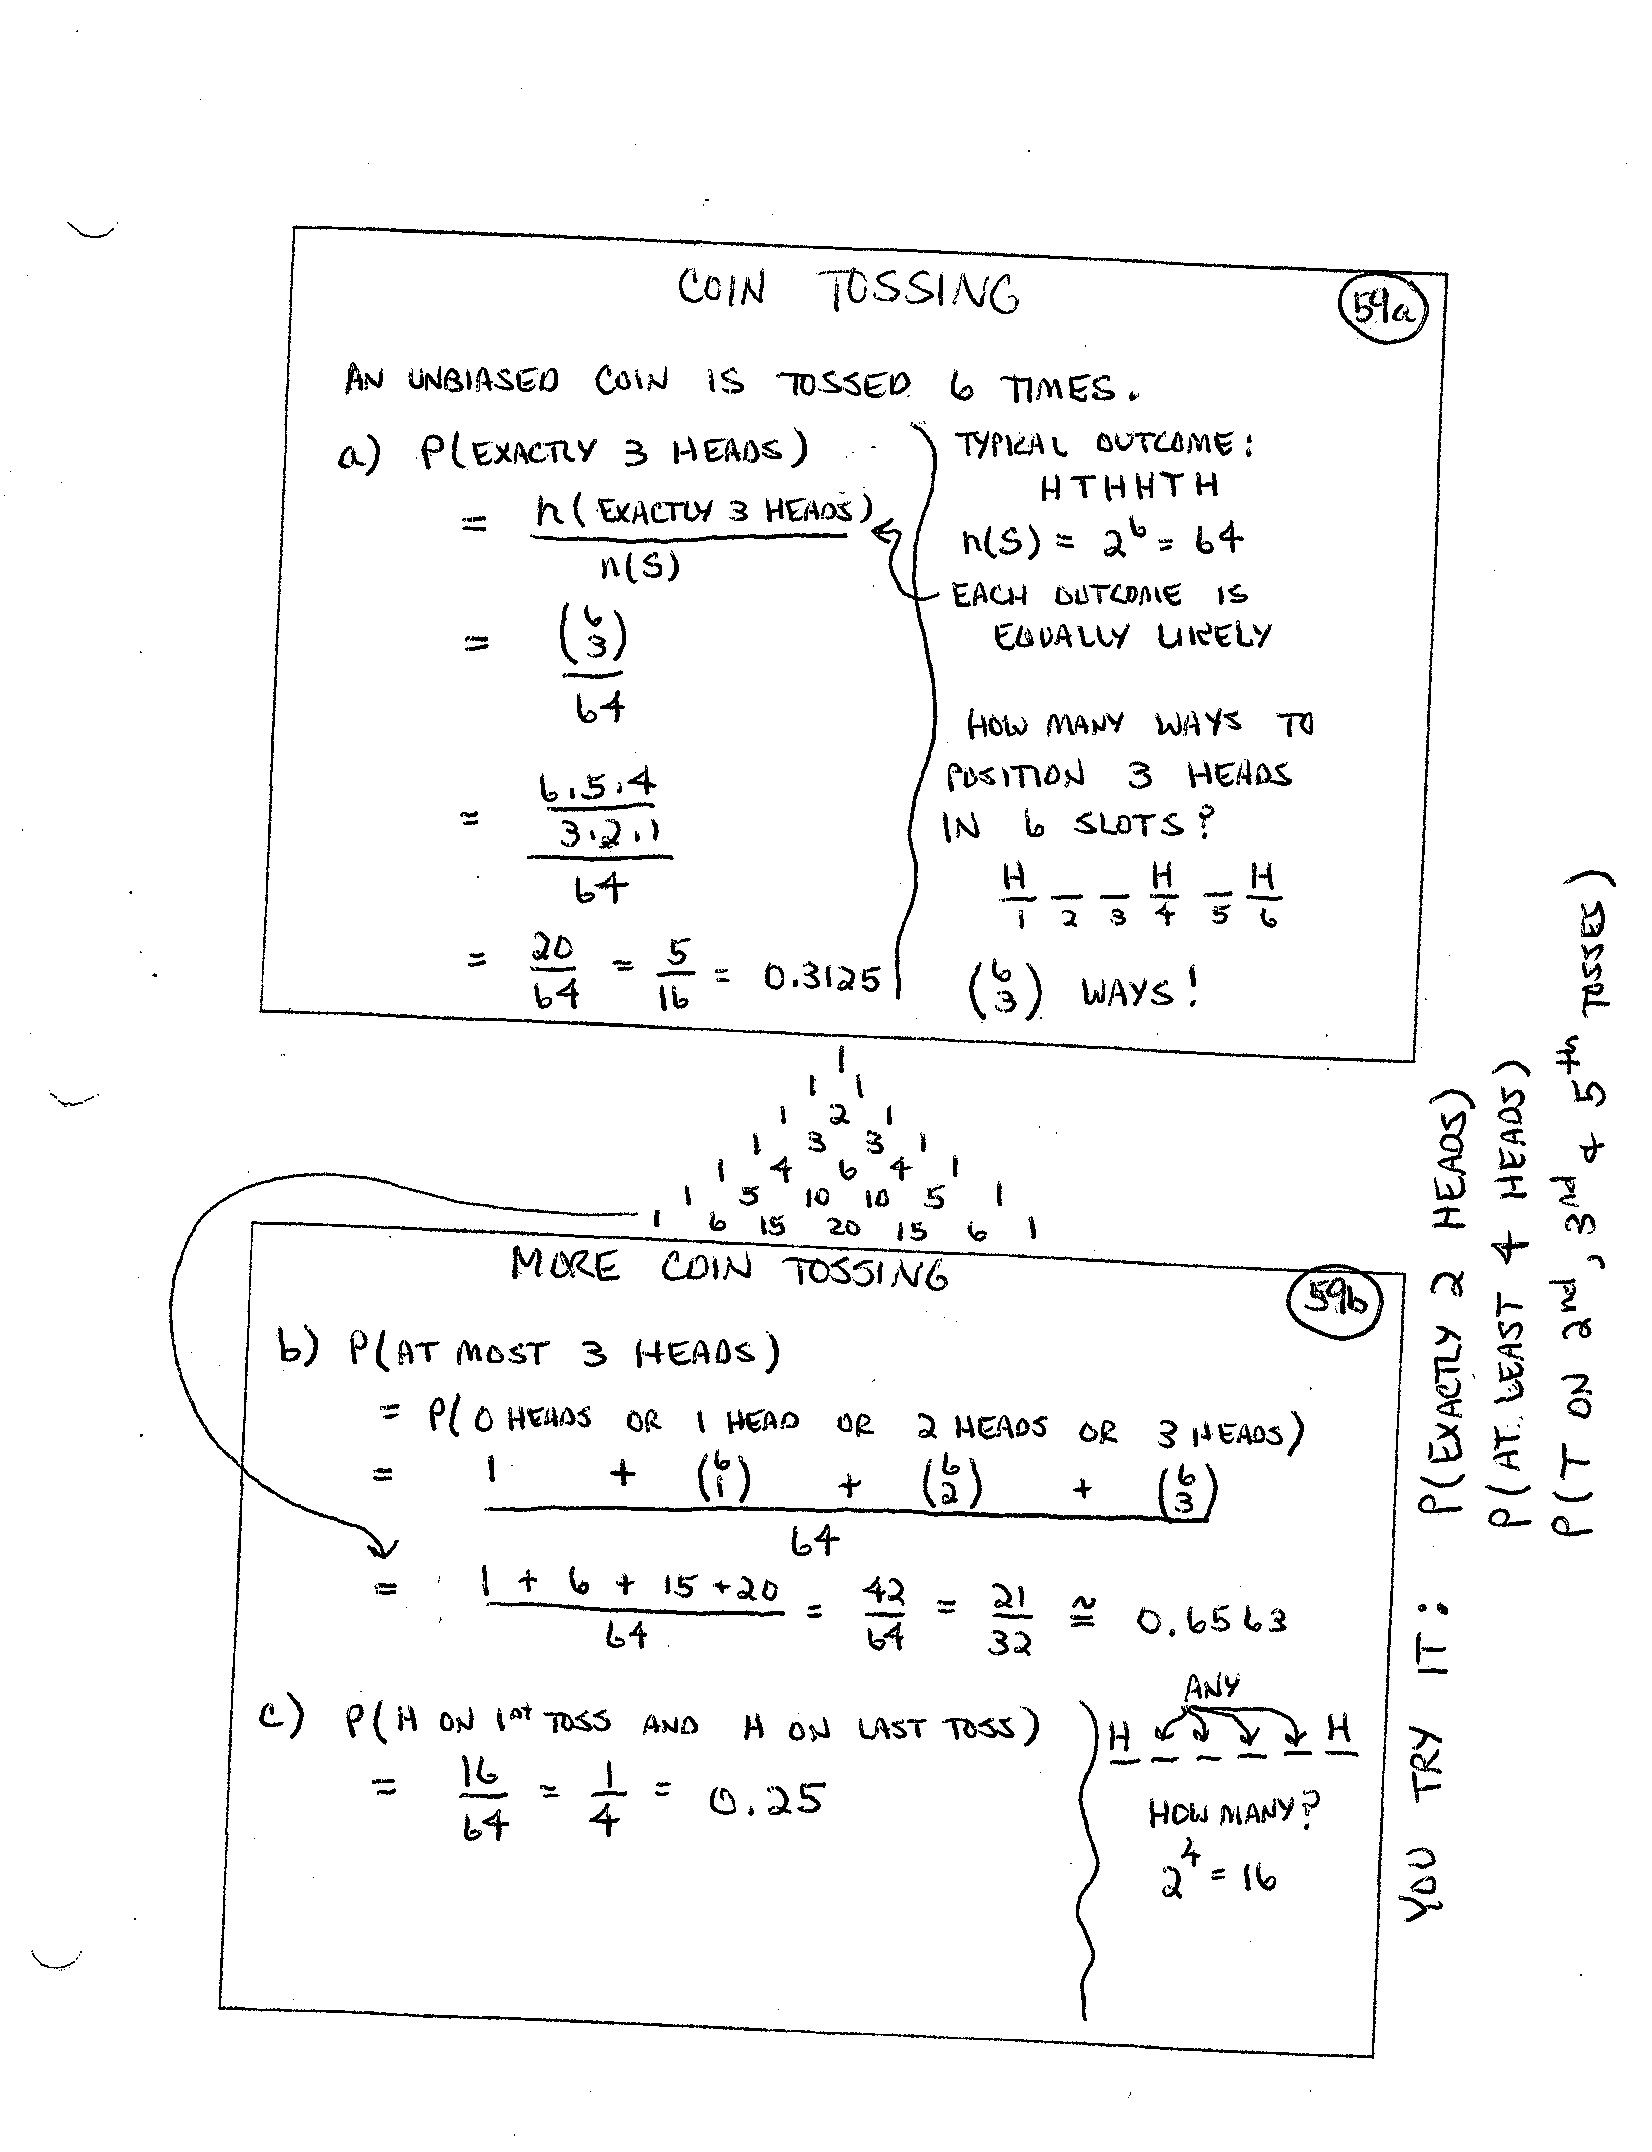 COIN TOSSING
59a
AN UNBIASED COIN IS TOSSED 6 TIMES.
a) P(EXACTLY 3 HEADS)
= n(EXACTLY 3 HEADS)
n(S)
= (6
3)
64
= 6·5·4
3·2·1
64
= 20/64 = 5/16 = 0.3125
TYPICAL OUTCOME:
HTHHTH
n(S) = 2^6 = 64
EACH OUTCOME IS
EQUALLY LIKELY
HOW MANY WAYS TO
POSITION 3 HEADS
IN 6 SLOTS?
H _ _ H _ H
1 2 3 4 5 6
(6
3) WAYS!
1
1 1
1 2 1
1 3 3 1
1 4 6 4 1
1 5 10 10 5 1
1 6 15 20 15 6 1
MORE COIN TOSSING
59b
b) P(AT MOST 3 HEADS)
= P(0 HEADS OR 1 HEAD OR 2 HEADS OR 3 HEADS)
= 1 + (6 1) + (6 2) + (6 3)
64
= 1 + 6 + 15 + 20 / 64 = 42/64 = 21/32 ≅ 0.6563
c) P(H ON 1st TOSS AND H ON LAST TOSS)
= 16/64 = 1/4 = 0.25
ANY
H _ _ _ _ H
HOW MANY?
2^4 = 16
YOU TRY IT: P(EXACTLY 2 HEADS)
P(AT LEAST 4 HEADS)
P(T ON 2nd, 3rd + 5th TOSSES)